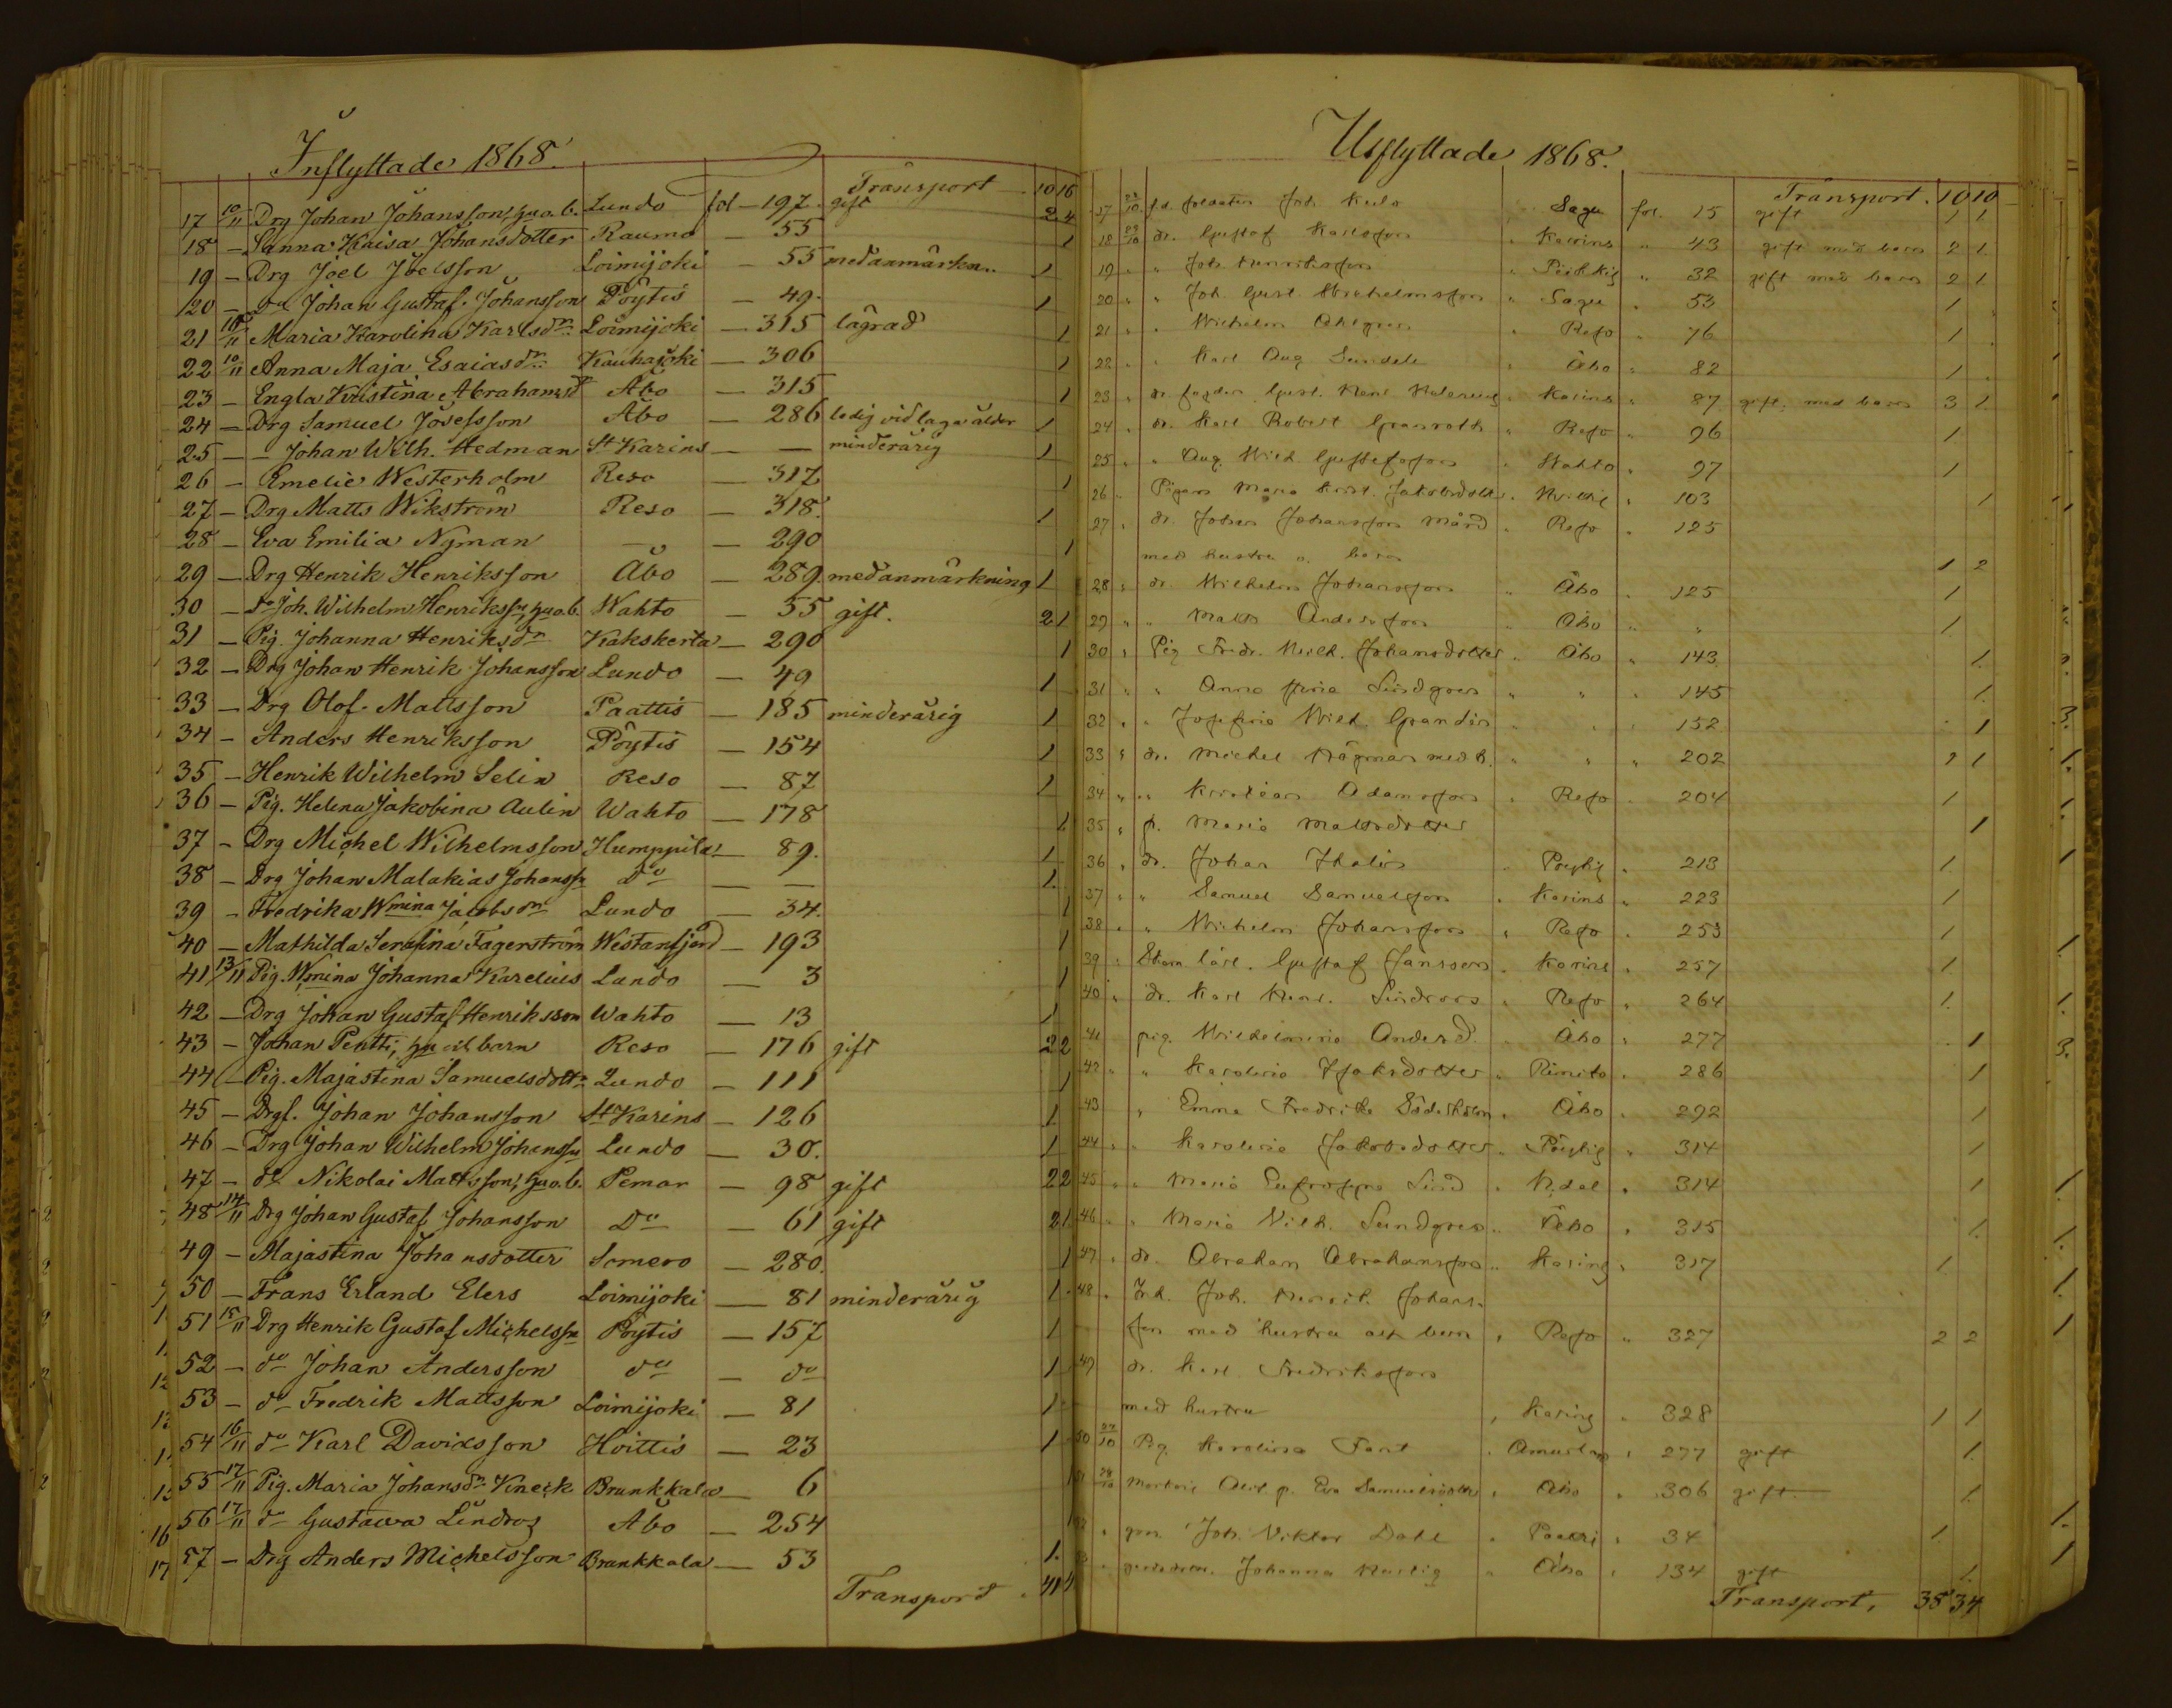 Inflyttade 1868.
Transport 10 16
17 10/11 Drg Johan Johansson, hu o. b. Lundo fol — 197. gift 2 4
18 — Sanna Kaisa Johansdotter Raumo — 55 1
19 — Drg Joel Joelsson Loimijoki — 55 med anmärkn. 1
20 — do Johan Gustaf Johansson Pöytis — 49. 1
21 10/11 Maria Karolina Karlsdr Loimijoki — 315 lagrad 1
22 10/11 Anna Maja Esaiasdr Kauhajoki — 306 1
23 — Engla Kristina Abrahamsd Åbo — 315 1
24 — Drg Samuel Josefsson Åbo — 286 ledig vid laga ålder 1
25 — — Johan Wilh. Hedman St Karins — — minderårig 1
26 — Emelie Westerholm Reso — 317 1
27 — Drg Matts Wikström Reso — 318. 1
28 — Eva Emilia Nyman — — 290 1
29 — Drg Henrik Henriksson Åbo — 289. med anmärkning 1
30 — do Joh. Wilhelm Henrikssn, hu o. b. Wahto — 55 gift. 2 1
31 — Pig. Johanna Henriksdr Kakskerta — 290 1
32 — Drg Johan Henrik Johansson Lundo — 49 1
33 — Drg Olof Mattsson Paattis — 185 minderårig 1
34 — Anders Henriksson Pöytis — 154 1
35 — Henrik Wilhelm Selin Reso — 87 1
36 — Pig. Helena Jakobina Aulin Wahto — 178 1
37 — Drg Michel Wilhelmsson Humppila — 89. 1
38 — Drg Johan Malakias Johanssn do — — 1.
39 — Fredrika Wmina Jacobsdr Lundo — 34. 1
40 — Mathilda Serafina Fagerström Westanfjärd — 193 1
41 13/11 Pig. Wmina Johanna Karelius Lundo — 3 1
42 — Drg Johan Gustaf Henriksson Wahto — 13 1
43 — Johan Pentti, hu och barn Reso — 176 gift 2 2
44 — Pig. Majastina Samuelsdottr Lundo — 111 1
45 — Drgf. Johan Johansson St Karins — 126 1
46 — Drg Johan Wilhelm Johanssn Lundo — 30. 1
47 — do Nikolai Mattsson, hu o. b. Pemar — 98 gift 2 2
48 14/11 Drg Johan Gustaf Johansson Do — 61 gift 2 1
49 — Majastina Johansdotter Somero — 280. 1
50 — Frans Erland Elers Loimijoki — 81 minderårig 1
51 15/11 Drg Henrik Gustaf Michelssn Pöytis — 157 1
52 — do Johan Andersson do — do 1
53 — do Fredrik Mattsson Loimijoki — 81 1
54 16/11 do Karl Davidsson Hvittis — 23 1
55 17/11 Pig. Maria Johansdr Kneck Brunkkala — 6 1
56 17/11 do Gustawa Lindros Åbo — 254 1
57 — Drg Anders Michelsson Brunkkala — 53 1.
Transport
Utflyttade 1868.
Transport. 10 10
17 fd. soldaten Joh. Sagu fol. 15 gift 1 1
18 23/10 dr. Gustaf Karlsson " Karins " 43 gift med barn 2 1
19 " " Joh. Henriksson " 32 gift med barn 2 1
20 " " Joh. Gust. Wilhelmsson " Sagu " 53 1
21 " " Wilhelm Ahlgren " Reso " 76 1
22 " " Karl Aug Sundell " Åbo " 82 1
23 " Gust. Karins " 87 gift, med barn 3 1
24 " dr. Karl Robert Granroth " Reso " 96 1
25 " " Aug. Wilh. Gustafsson " Wahto " 97 1
26 " Pigan Maria Krist. Jakobsdotter " 103 1
27 " dr. Johan Johansson Mård " Reso " 125
med hustru o. barn 1 2
28 " dr Wilhelm Johansson " Åbo " 125 1
29 " " Matts Andersson " Åbo " " 1
30 " Pig Fredr. Wilh. Johansdotter " Åbo " 143 1
31 " " Anna Stina Lindgren " " " 145 1
32 " " Josefina Wilh. Grandin " " " 152 1
33 " dr. Michel Högman med h. " " " 202 1 1
34 " " Kristian Adamsson " Reso " 204 1
35 " p. Maria Mattsdotter 1
36 " dr. Johan Thalin " 213 1
37 " " Samuel Samuelsson " Karins " 223 1
38 " " Wilhelm Johansson " Reso " 253 1
39 " Skom. lärl. Gustaf Jansson " Karins " 257 1
40 " dr. Karl Lindroos " Reso " 264 1
41 pig. Wilhelmina Andersd. " Åbo " 277 1
42 " " Karolina Isaksdotter " Rimito " 286 1
43 " Emma Fredrika Söderholm " Åbo " 292 1
44 " " Karolina Jakobsdotter " 314 1
45 " " Maria Eufrosyne Lind " N:dal " 314 1
46 " " Maria Wilh. Sundgren " Åbo " 315 1
47 " dr. Abraham Abrahamsson " Karins " 317 1
48 " Joh. Henrik Johans-
son med hustru och barn " Reso " 327 2 2
49 dr. Karl Fredriksson
med hustru " Karins " 328 1 1
50 Pig. Karolina Fant " " 277 gift 1
p. Eva Samuelsdotter " Åbo " 306 gift 1
Joh. Viktor Dahl " " 34 1
Johanna " Åbo " 134 gift 1
Transport, 38 34